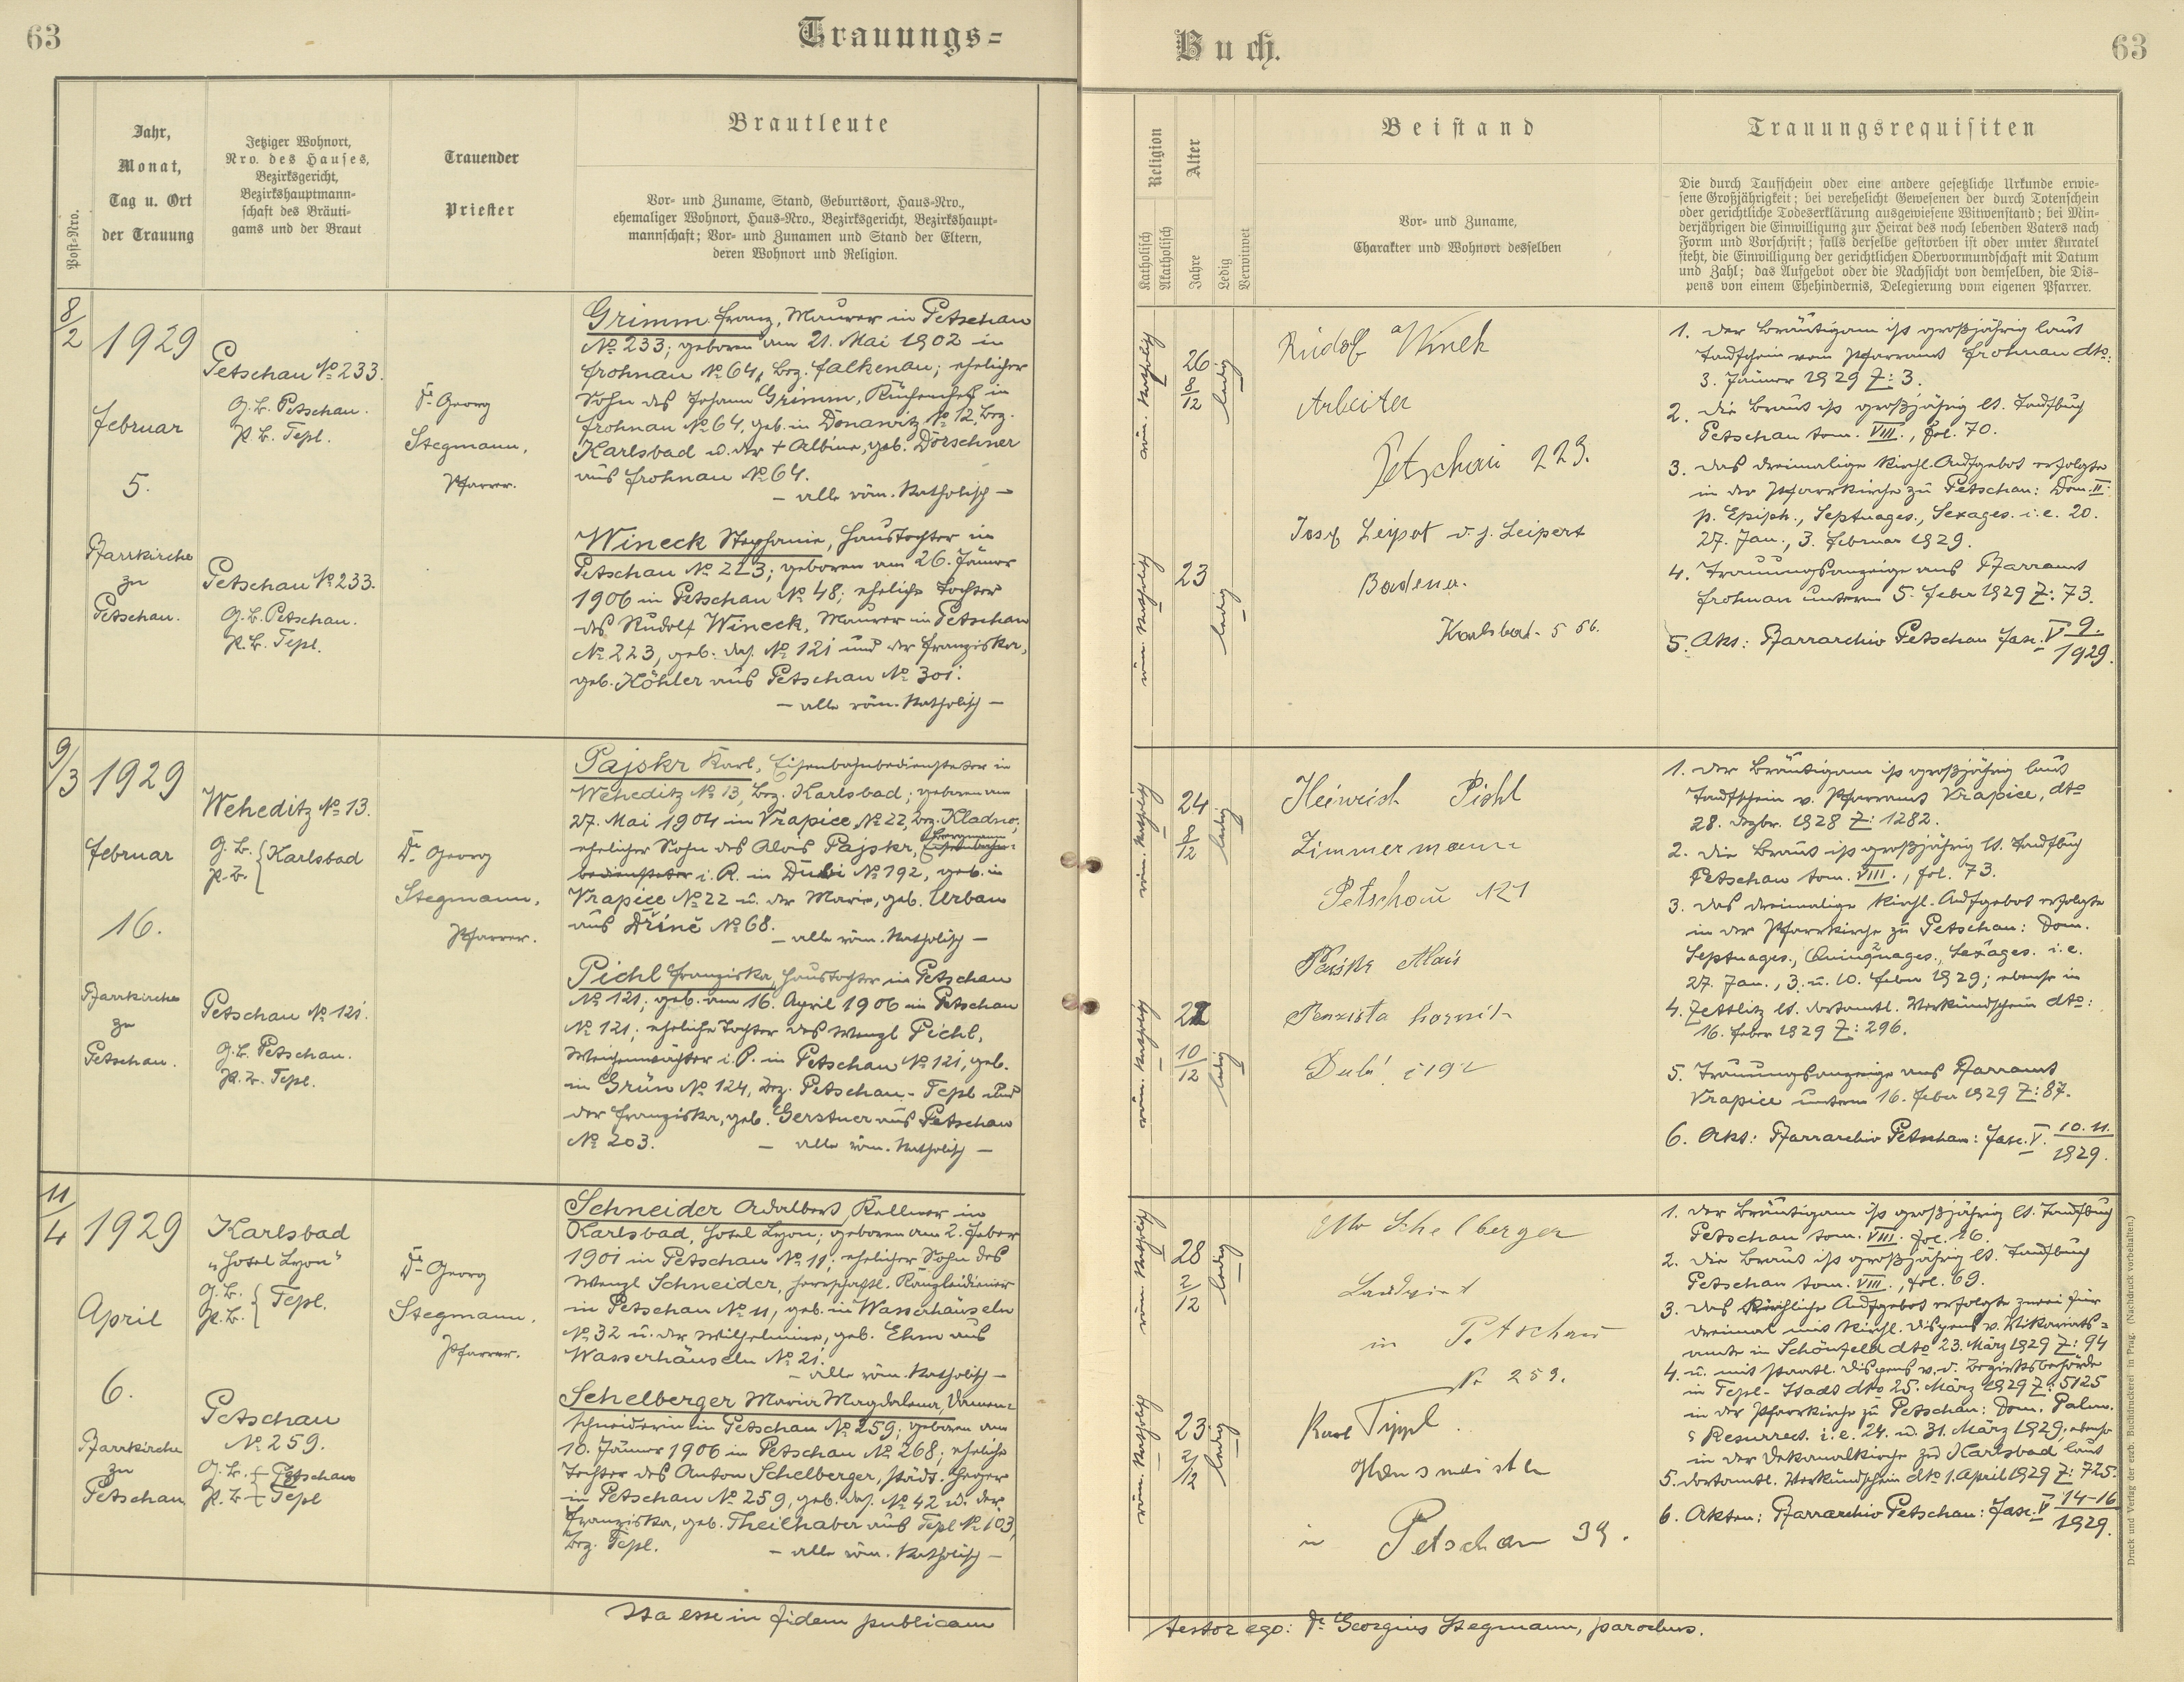 63
Trauungs=
Jahr,
Monat,
Tag u. Ort
der Trauung
Post-Nro.
Jetziger Wohnort,
Nro. des Hauses,
Bezirksgericht,
Bezirkshauptmann-
schaft des Bräuti-
gams und der Braut
Trauender
Priester
Brautleute
Vor- und Zuname, Stand, Geburtsort, Haus-Nro.,
ehemaliger Wohnort, Haus-Nro., Bezirksgericht, Bezirkshaupt-
mannschaft; Vor- und Zunamen und Stand der Eltern,
deren Wohnort und Religion.
8/2
1929
Februar
5.
Pfarrkirche
zu
Petschau.
Petschau № 233.
G.B. Petschau.
P.B. Tepl.
Petschau № 233.
G.B. Petschau.
P.B. Tepl.
Dr. Georg
Stegmann,
Pfarrer.
Grimm Franz, Maurer in Petschau
№ 233; geboren am 21. Mai 1902 in
Frohnau № 64, Bez. Falkenau; ehelicher
Sohn des Johann Grimm, Küchenchef in
Frohnau № 64, geb. in Donawitz № 12, Bez.
Karlsbad u. der + Albine, geb. Dörschner
aus Frohnau № 64.
— alle röm. katholisch —
Wineck Stephanie, Haustochter in
Petschau № 223; geboren am 26. Jänner
1906 in Petschau № 48; eheliche Tochter
des Rudolf Wineck, Maurer in Petschau
№ 223, geb. das. № 121 und der Franziska,
geb. Köhler aus Petschau № 301.
— alle röm. katholisch —
9/3
1929
Februar
16.
Pfarrkirche
zu
Petschau.
Weheditz № 13.
G.B.
P.B. { Karlsbad
Petschau № 121.
G.B. Petschau.
P.B. Tepl.
Dr. Georg
Stegmann,
Pfarrer.
Pajskr Karl, Eisenbahnbediensteter in
Weheditz № 13, Bez. Karlsbad; geboren am
27. Mai 1904 in Vrapice № 22, Bez. Kladno;
ehelicher Sohn des Alois Pajskr, Bergmann Eisenbahn-
bediensteter i. R. in Dubi № 192, geb. in
Vrapice № 22 u. der Marie, geb. Urban
aus Dřinč № 68.
— alle röm. katholisch —
Pichl Franziska, Haustochter in Petschau
№ 121; geb. am 16. April 1906 in Petschau
№ 121; eheliche Tochter des Wenzl Pichl,
Weichenwächter i. P. in Petschau № 121, geb.
in Grün № 124, Bez. Petschau - Tepl und
der Franziska, geb. Gerstner aus Petschau
№ 203.
— alle röm. katholisch —
11/4
1929
April
6.
Pfarrkirche
zu
Petschau
Karlsbad
„Hotel Lyon“
G.B.
P.B. { Tepl.
Petschau
№ 259.
G.B. Petschau
P.B. Tepl
Dr. Georg
Stegmann,
Pfarrer.
Schneider Adalbert, Kellner in
Karlsbad, Hotel Lyon; geboren am 2. Feber
1901 in Petschau № 11; ehelicher Sohn des
Wenzl Schneider, herrschaftl. Kanzleidiener
in Petschau № 11, geb. in Wasserhäuseln
№ 32 u. der Wilhelmine, geb. Ehm aus
Wasserhäuseln № 21.
— alle röm. katholisch —
Schelberger Maria Magdalena, Damen-
schneiderin in Petschau № 259; geboren am
10. Jänner 1906 in Petschau № 268; eheliche
Tochter des Anton Schelberger, städt. Heger
in Petschau № 259, geb. das. № 42 u. der
Franziska, geb. Theilhaber aus Tepl № 103,
Bez. Tepl.
— alle röm. katholisch —
Ita esse in fidem publicam
Buch.
63
Religion
Katholisch
Akatholisch
Alter
Jahre
Ledig
Verwitwet
Beistand
Vor- und Zuname,
Charakter und Wohnort desselben
Trauungsrequisiten
Die durch Taufschein oder eine andere gesetzliche Urkunde erwie-
sene Großjährigkeit; bei verehelicht Gewesenen der durch Totenschein
oder gerichtliche Todeserklärung ausgewiesene Witwenstand; bei Min-
derjährigen die Einwilligung zur Heirat des noch lebenden Vaters nach
Form und Vorschrift; falls derselbe gestorben ist oder unter Kuratel
steht, die Einwilligung der gerichtlichen Obervormundschaft mit Datum
und Zahl; das Aufgebot oder die Nachsicht von demselben, die Dis-
pens von einem Ehehindernis, Delegierung vom eigenen Pfarrer.
röm. katholisch
26
8/12
ledig
röm. katholisch
23
ledig
Rudolf Winek
Arbeiter
Petschau 223.
Josef Leipot v. j. Leipert
Badena.
Karlsbad
1. Der Bräutigam ist großjährig laut
Taufschein vom Pfarramt Frohnau dto:
3. Jänner 1929 Z: 3.
2. Die Braut ist großjährig lt. Taufbuch
Petschau tom. VIII., fol. 70.
3. Das dreimalige kirchl. Aufgebot erfolgte
in der Pfarrkirche zu Petschau: Dom. II.
p. Epiph., Septuages., Sexages. i. e. 20.
27. Jan., 3. Februar 1929.
4. Trauungsanzeige ans Pfarramt
Frohnau unterm 5. Feber 1929 Z: 73.
5. Akt: Pfarrarchiv Petschau Fasc. V 9./1929.
röm. katholisch
24
8/12
ledig
röm. katholisch
22
10/12
ledig
Heinrich Pichl
Zimmermann
Petschau 121
Pajskr Alois
Penzista horník
Dubí č 192
1. Der Bräutigam ist großjährig laut
Taufschein v. Pfarramt Vrapice, dto
28. Dezbr. 1928 Z: 1282.
2. Die Braut ist großjährig lt. Taufbuch
Petschau tom. VIII., fol. 73.
3. Das dreimalige kirchl. Aufgebot erfolgte
in der Pfarrkirche zu Petschau: Dom.
Septuages., Quinquages., Sexages. i. e.
27. Jan., 3. u. 10. Feber 1929; ebenso in
4. Zettlitz lt. dortamtl. Verkündschein dto:
16. Feber 1929 Z: 296.
5. Trauungsanzeige ans Pfarramt
Vrapice unterm 16. Feber 1929 Z: 87.
6. Akt: Pfarrarchiv Petschau: Fasc. V. 10. 11./1929.
röm. katholisch
28
2/12
ledig
röm. katholisch
23
2/12
ledig
Otto Schelberger
Landwirt
in Petschau
Nr 259.
Karl Tippl
Hausmeister
in Petschau 39.
1. Der Bräutigam ist großjährig lt. Taufbuch
Petschau tom. VIII. fol. 16.
2. Die Braut ist großjährig lt. Taufbuch
Petschau tom. VIII., fol. 69.
3. Das kirchliche Aufgebot erfolgte zwei für
dreimal mit kirchl. Dispens v. Vikariats-
amte in Schönfeld dto 23. März 1929 Z: 94
4. u. mit staatl. Dispens v. d. Bezirksbehörde
in Tepl-Stadt dto 25. März 1929 Z: 5125
in der Pfarrkirche zu Petschau: Dom. Palm.
Resurrect. i. e. 24. u. 31. März 1929; ebenso
in der Dekanalkirche zu Karlsbad laut
5. dortamtl. Verkündschein dto 1. April 1929 Z: 725.
6. Akten: Pfarrarchiv Petschau: Fasc. V 14-16/1929.
testor ego: Dr. Georgius Stegmann, parochus.
Druck und Verlag der erzb. Buchdruckerei in Prag. (Nachdruck vorbehalten.)